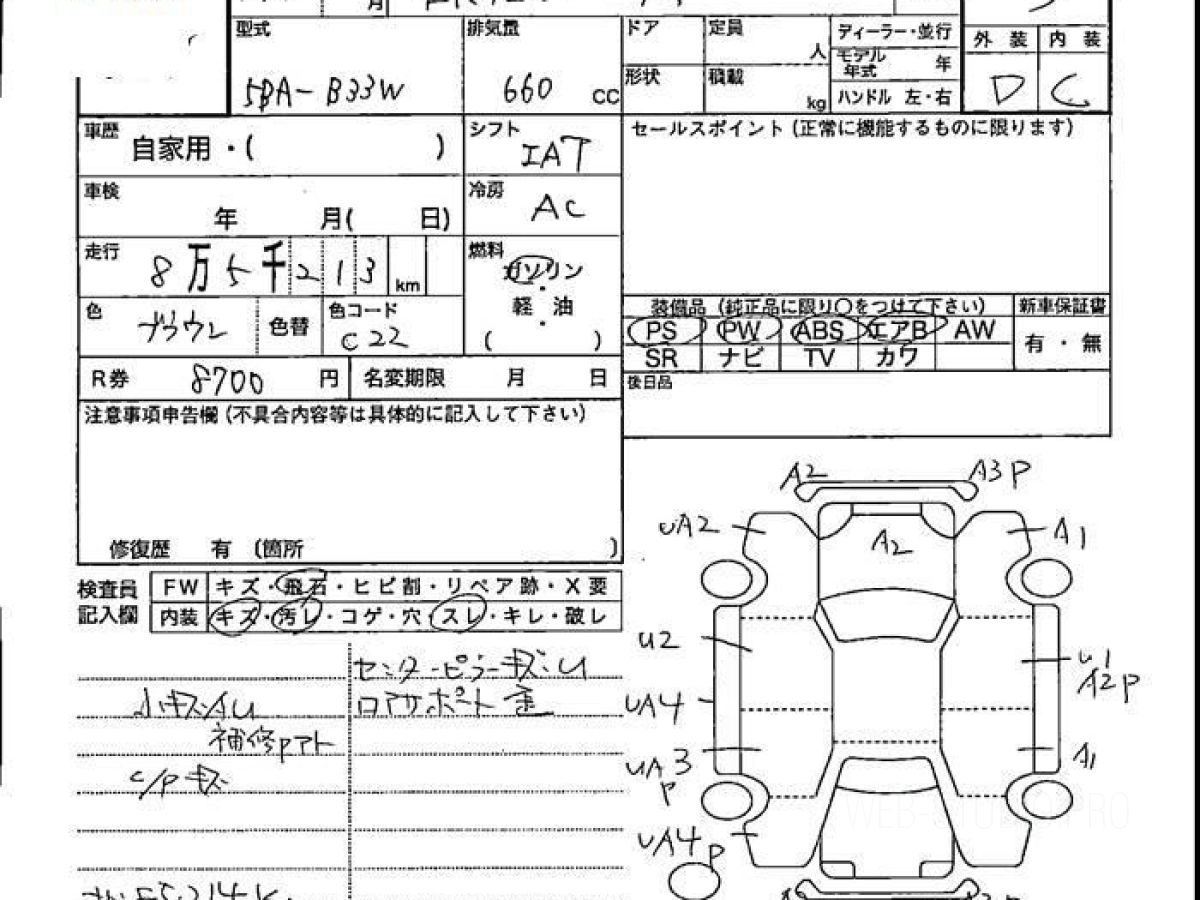 月
型式 排気量 ドア 定員 人 ディーラー・並行 外装 内装
モデル年式 年
5BA-B33W 660 CC 形状 積載 kg ハンドル 左・右 D C
車歴 自家用・( ) シフト IAT セールスポイント(正常に機能するものに限ります)
車検 年 月( 日) 冷房 AC
走行 8万5千213 km 燃料 ガソリン
軽・油
( )
色 ブラウン 色替 色コード C22
装備品(純正品に限り○をつけて下さい) 新車保証書
PS PW ABS エアB AW 有・無
SR ナビ TV カワ
R券 8700円 名変期限 月 日 後日品
注意事項申告欄(不具合内容等は具体的に記入して下さい)
修復歴 有 (箇所 )
検査員記入欄 FW キズ・飛石・ヒビ割・リペア跡・X要
内装 キズ・汚レ・コゲ・穴・スレ・キレ・破レ
センターピラーキズ・U
小キズAU ロアサポート歪
補修Pアト
C/Pキズ
A2 A3P
UA2 A2 A1
U2 U1
A2P
UA4
UA3 A1
P
UA4P